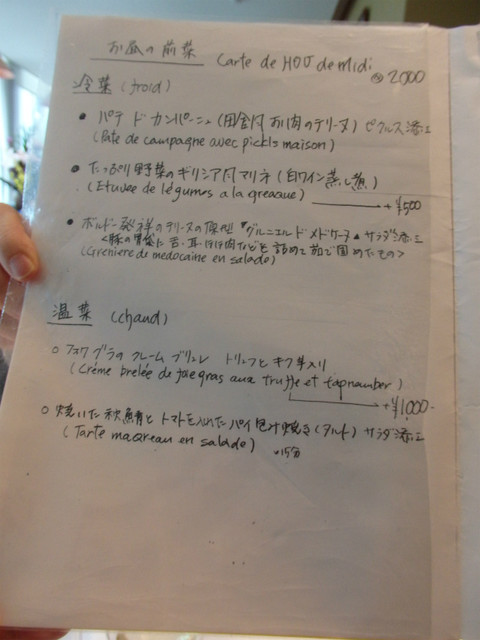 お昼の前菜 Carte de HOU de midi
@ 2000
冷菜 (froid)
• パテ ド カンパーニュ (田舎風 お肉のテリーヌ) ピクルス添え
(Pate de campagne avec pickls maison)
• たっぷり野菜のギリシア風マリネ (白ワイン蒸し煮)
(Etuvee de légumes a la greaque) → +¥500
• ボルドー発祥のテリーヌの原型 "グルニエル ド メドケーヌ" サラダ添え
<豚の胃袋に舌・耳・ほほ肉などを詰めて茹で固めたもの>
(Greniere de medocaine en salade)
温菜 (chaud)
○ フォワグラのクレーム ブリュレ トリュフとキクイモ入り
(Créme brelée de foie gras aux truffe et topinamber)
→ +¥1000-
○ 焼いた秋鯖とトマトを入れたパイ包み焼き (タルト) サラダ添え
(Tarte maqreau en salade) 15分